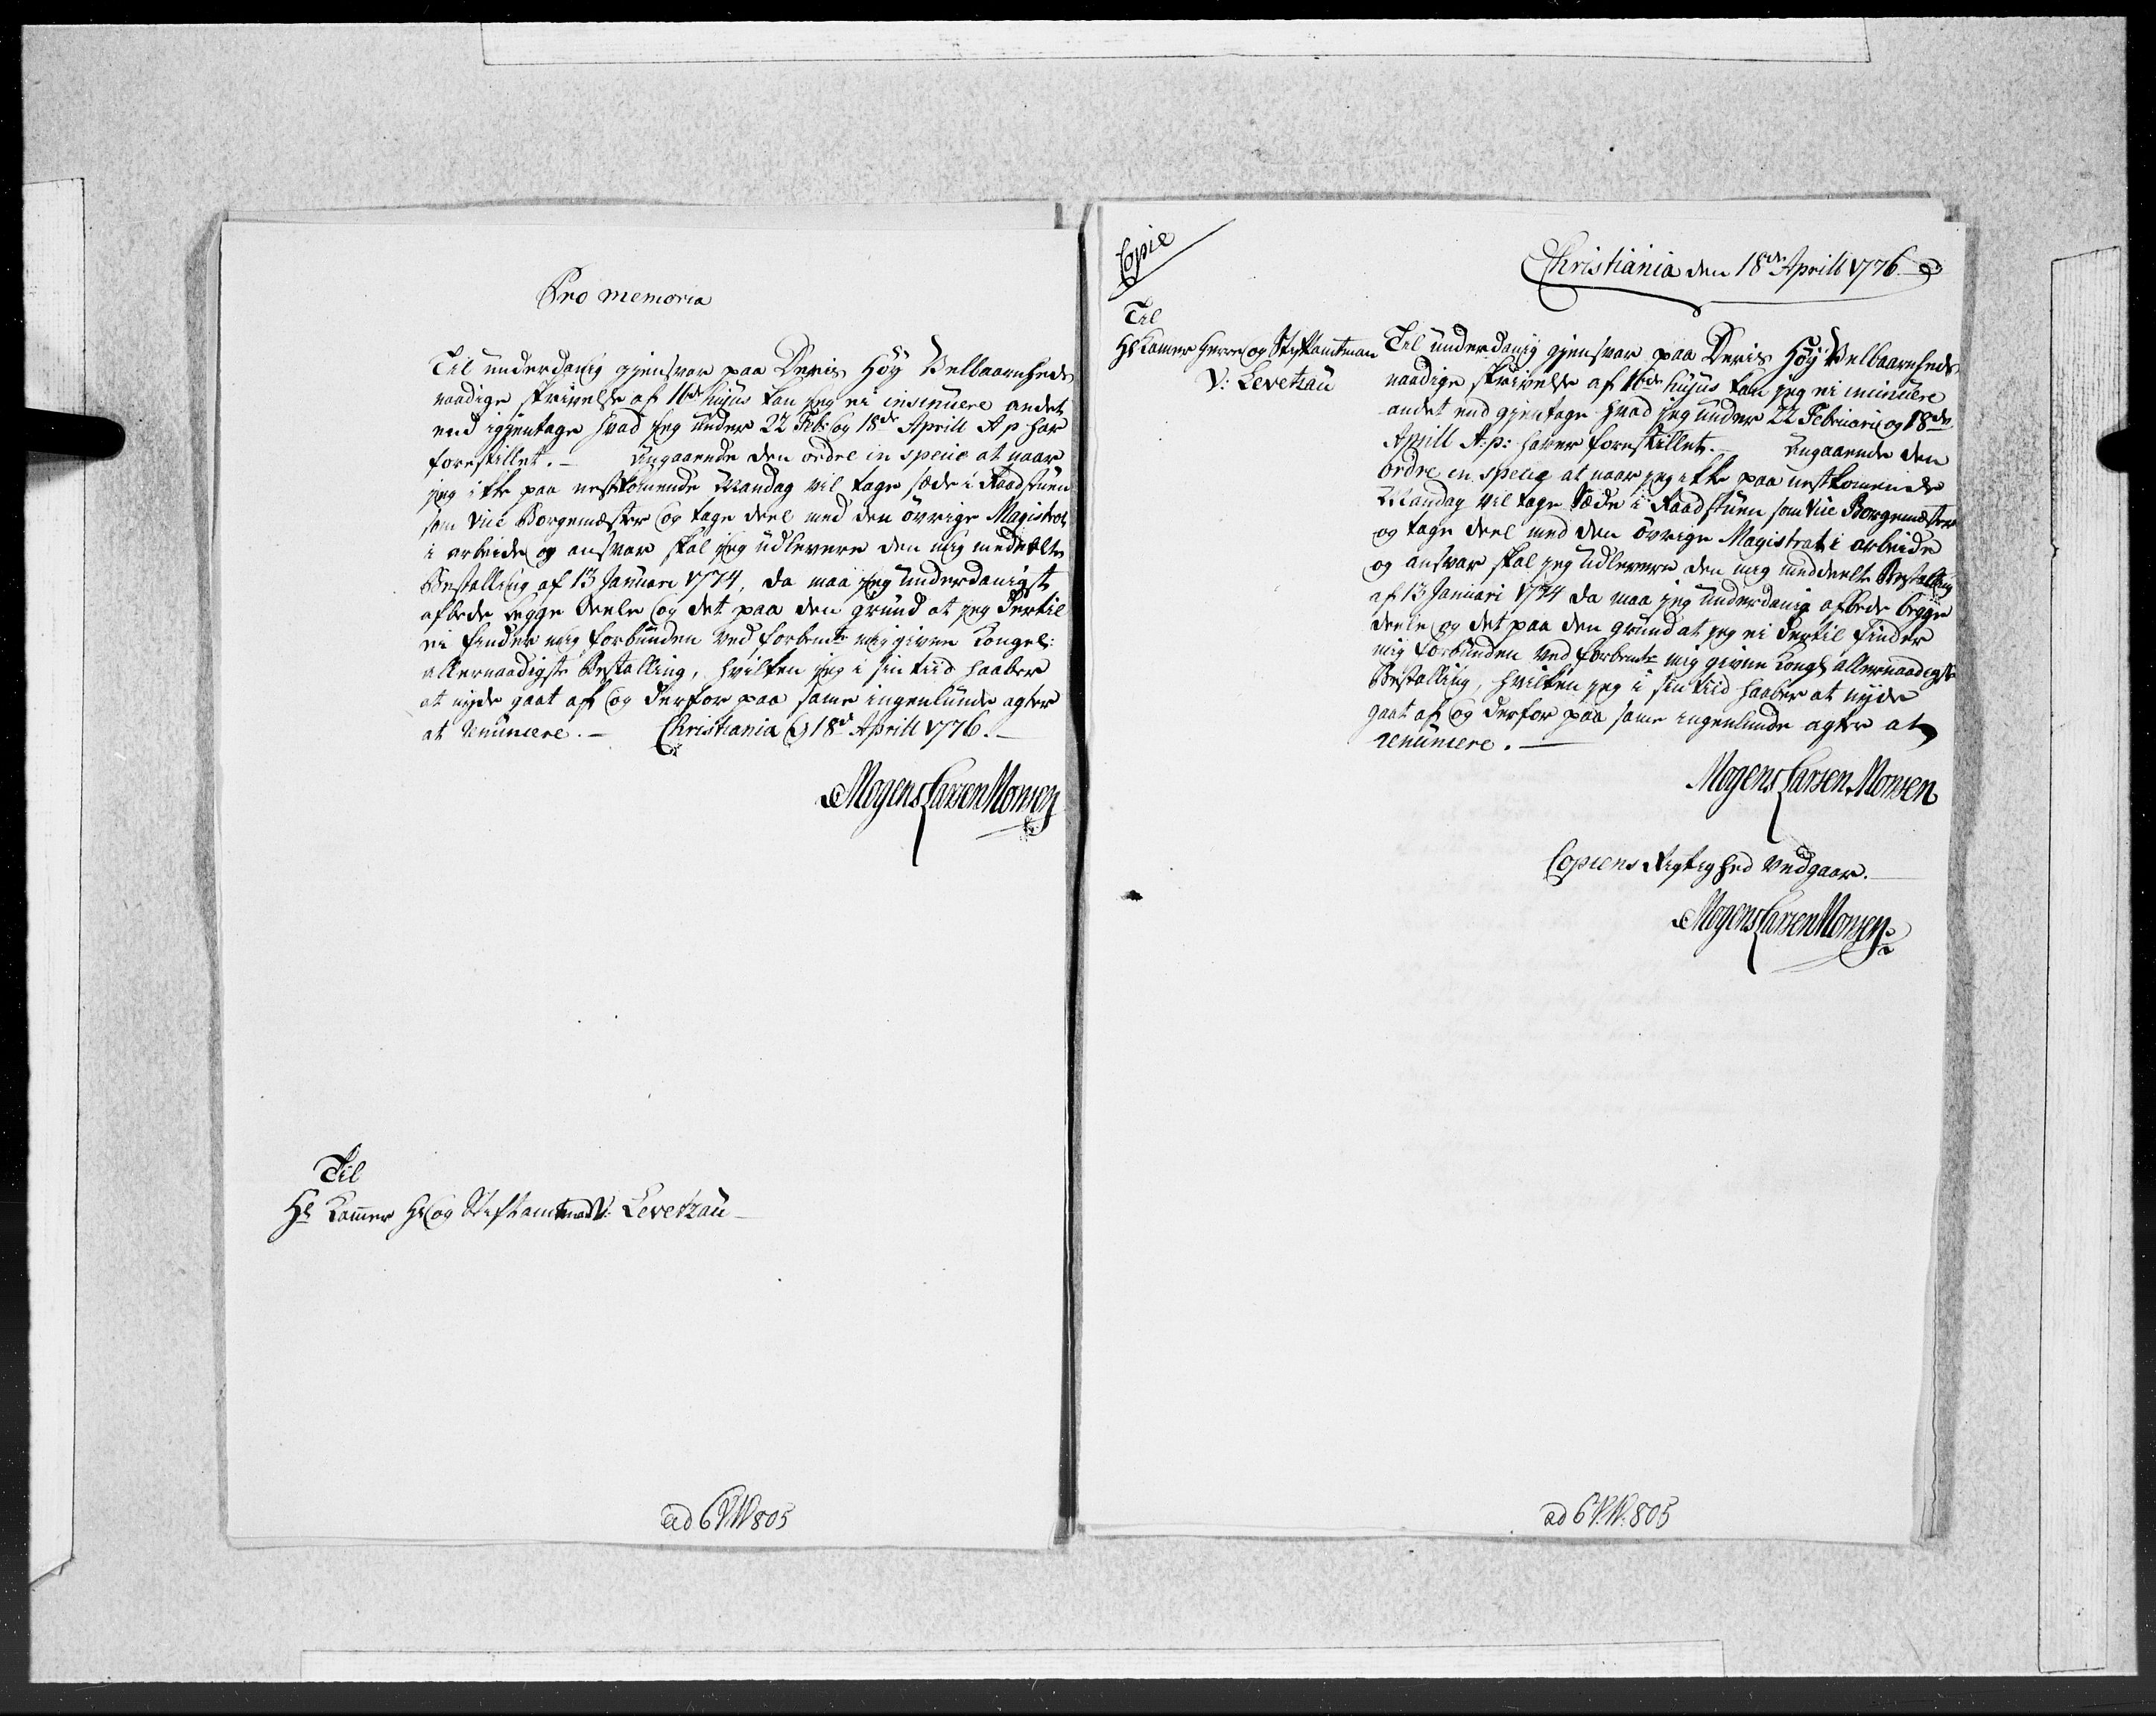 Pro memoria
Til underdanig gjensvar paa Deris Høy Velbaarnheds
naadige skrivelse af 16de hujus kan jeg ei insinuere andet
end igjentage hvad jeg under 22 Feb: og 18de Aprill A p har
forestillet. — Angaaende den ordre in specie at naar
jeg ikke paa nestkomende Mandag vil tage sæde i Raadstuen
som vice Borgemester og tage deel med den øvrige Magistrat
i arbeide og ansvar skal jeg udlevere den mig meddeelte
Bestalling af 13 Januari 1774, da maa jeg underdanigst
afbede begge deele og det paa den grund at jeg dertil
ei finder mig forbunden ved forbemte mig givne Kongel:
allernaadigste Bestalling, hvilken jeg i sin tiid haaber
at nyde gaat af og derfor paa same ingenlunde agter
at renuncere. — Christiania d 18de Aprill 1776. —
Mogens Larsen Monsen
Til
Hr Kammer Hr og Stiftamtmand V: Levetzau —
ad 6 V. N 805
Copie
Christiania den 18de Aprill 1776.
Til
Hr Kamer Herre og Stiftamtman
V: Levetzau
Til underdanig gjensvar paa Deris Høy Velbaarnheds
naadige skrivelse af 16de hujus kan jeg ei insinuere
andet end gjentage hvad jeg under 22 Februari og 18de
Aprill A: p: haver forestillet. — Angaaende den
ordre in specie at naar jeg ikke paa nestkomende
Mandag vil tage Sæde i Raadstuen som vice Borgemester
og tage deel med den øvrige Magistrat i arbeide
og ansvar skal jeg udlevere den mig meddeelte Bestalling
af 13 Januari 1774 da maa jeg underdanig afbede begge
deele og det paa den grund at jeg ei dertil finder
mig forbunden ved forbemte mig givne Kongl allernaadigste
Bestalling, hvilken jeg i sin tiid haaber at nyde
gaat af og derfor paa same ingenlunde agter at
renuncere. —
Mogens Larsen Monsen
Copiens Rigtighed vedgaar. —
Mogens Larsen Monsen
ad 6 V. N. 805